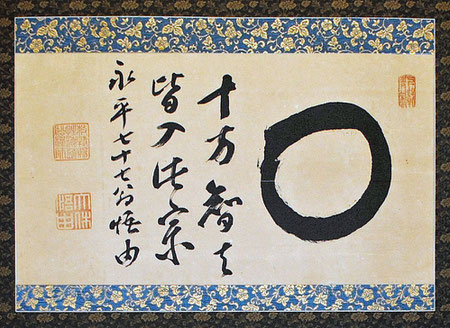 十方智者
皆入此宗
永平七十七翁悟由